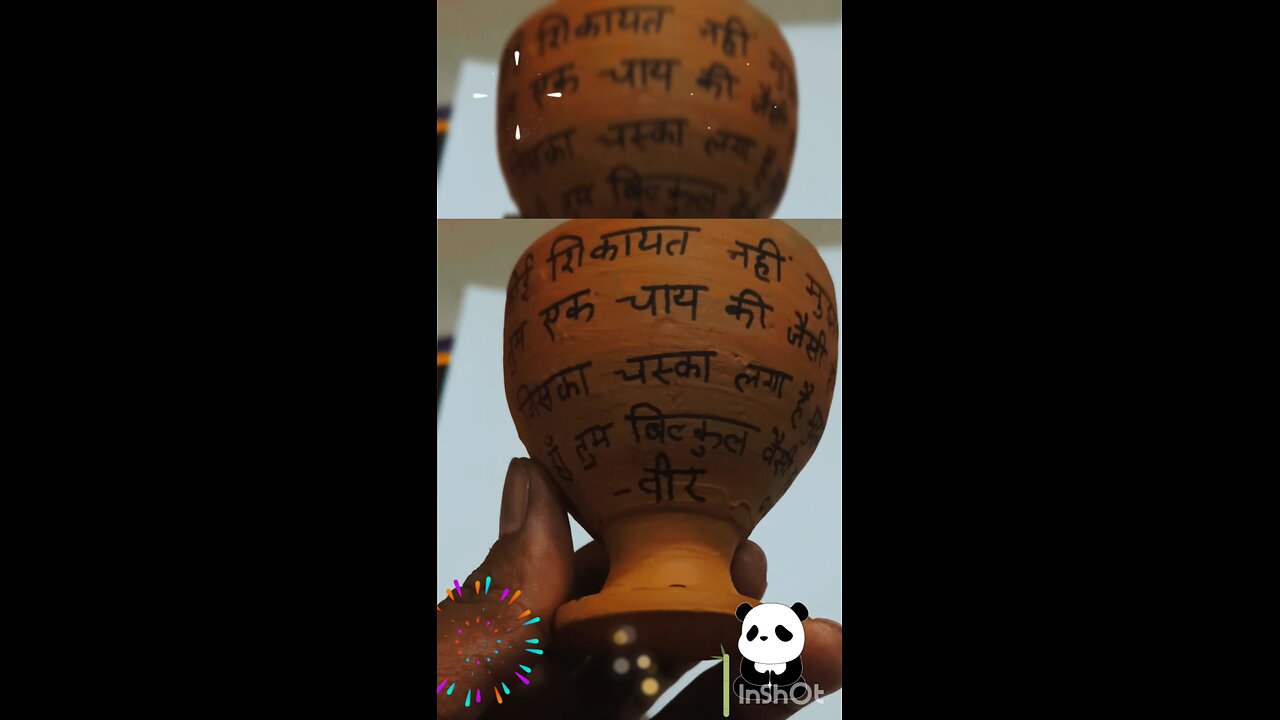 शिकायत नहीं
एक चाय की जैसी
चस्का लगा
बिल्कुल
कोई शिकायत नहीं
तुम एक चाय की जैसी
जिसका चस्का लगा है
हाँ तुम बिल्कुल वैसी
-वीर
InShOt